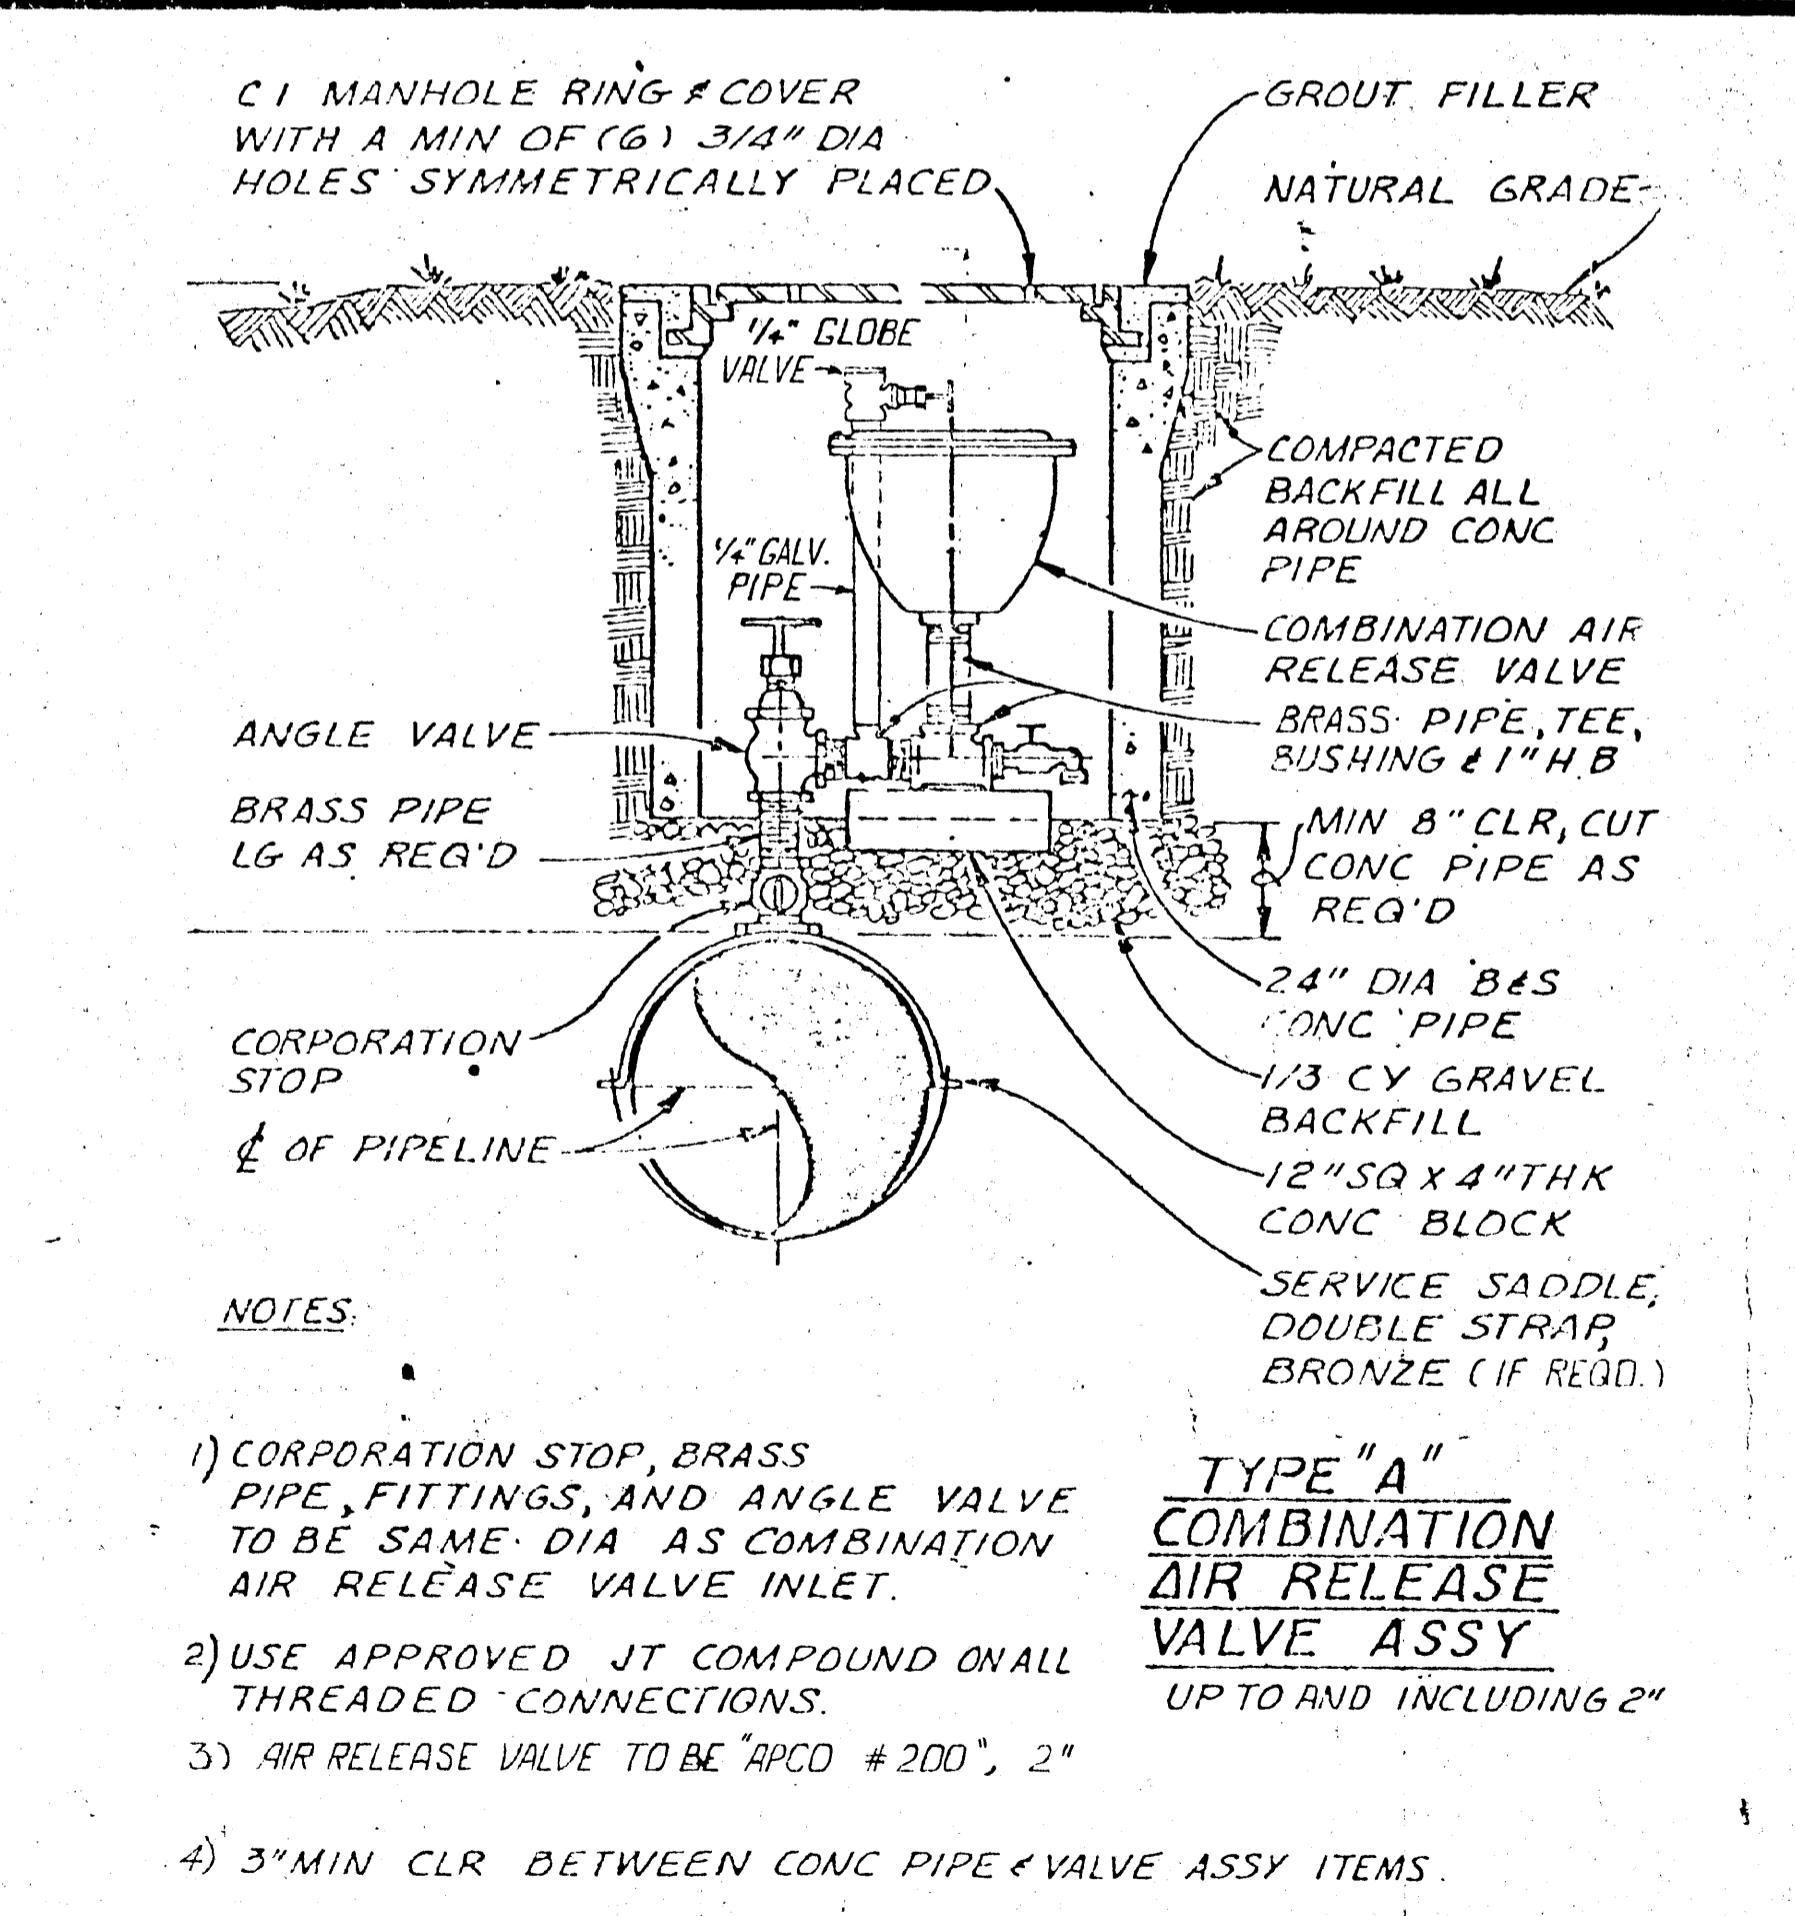 C I MANHOLE RING & COVER
WITH A MIN OF (6) 3/4" DIA
HOLES SYMMETRICALLY PLACED
GROUT FILLER
NATURAL GRADE
1/4" GLOBE
VALVE
COMPACTED
BACKFILL ALL
AROUND CONC
PIPE
1/4" GALV.
PIPE
COMBINATION AIR
RELEASE VALVE
ANGLE VALVE
BRASS PIPE, TEE,
BUSHING & 1" H.B
BRASS PIPE
LG AS REQ'D
MIN 8" CLR, CUT
CONC PIPE AS
REQ'D
24" DIA B&S
CONC PIPE
CORPORATION
STOP
1/3 CY GRAVEL
BACKFILL
℄ OF PIPELINE
12" SQ X 4" THK
CONC BLOCK
SERVICE SADDLE,
DOUBLE STRAP,
BRONZE (IF REQD.)
NOTES:
1) CORPORATION STOP, BRASS
PIPE, FITTINGS, AND ANGLE VALVE
TO BE SAME DIA AS COMBINATION
AIR RELEASE VALVE INLET.
2) USE APPROVED JT COMPOUND ON ALL
THREADED CONNECTIONS.
3) AIR RELEASE VALVE TO BE "APCO #200", 2"
4) 3" MIN CLR BETWEEN CONC PIPE & VALVE ASSY ITEMS.
TYPE "A"
COMBINATION
AIR RELEASE
VALVE ASSY
UP TO AND INCLUDING 2"